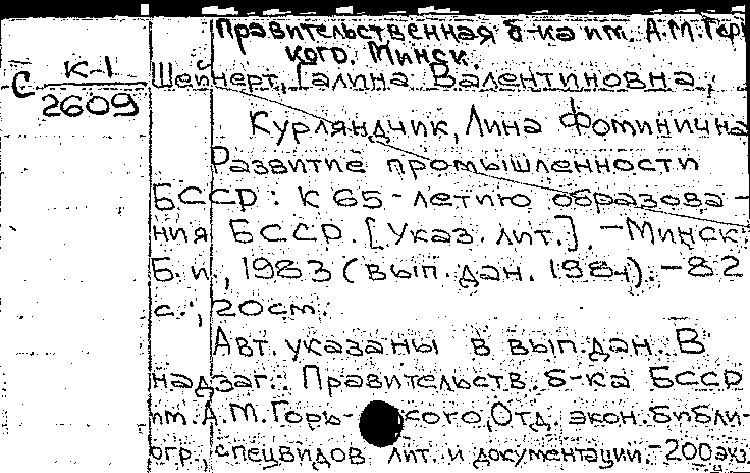 Правительственная б-ка им. А.М. Горь
кого. Минск.
С К-1
2609
Шейнерт, Галина Валентиновна,
Курляндчик, Лина Фоминична
Развитие промышленности
БССР: К 65-летию образова-
ния БССР. [Указ. лит.]. - Минск:
Б. и., 1983 (вып. дан. 1984). - 82
с.; 20 см.
Авт. указаны в вып. дан. В
надзаг.: Правительств. б-ка БССР
им. А.М. Горь- кого, Отд. экон. библи-
огр., спецвидов лит. и документации. - 200 экз